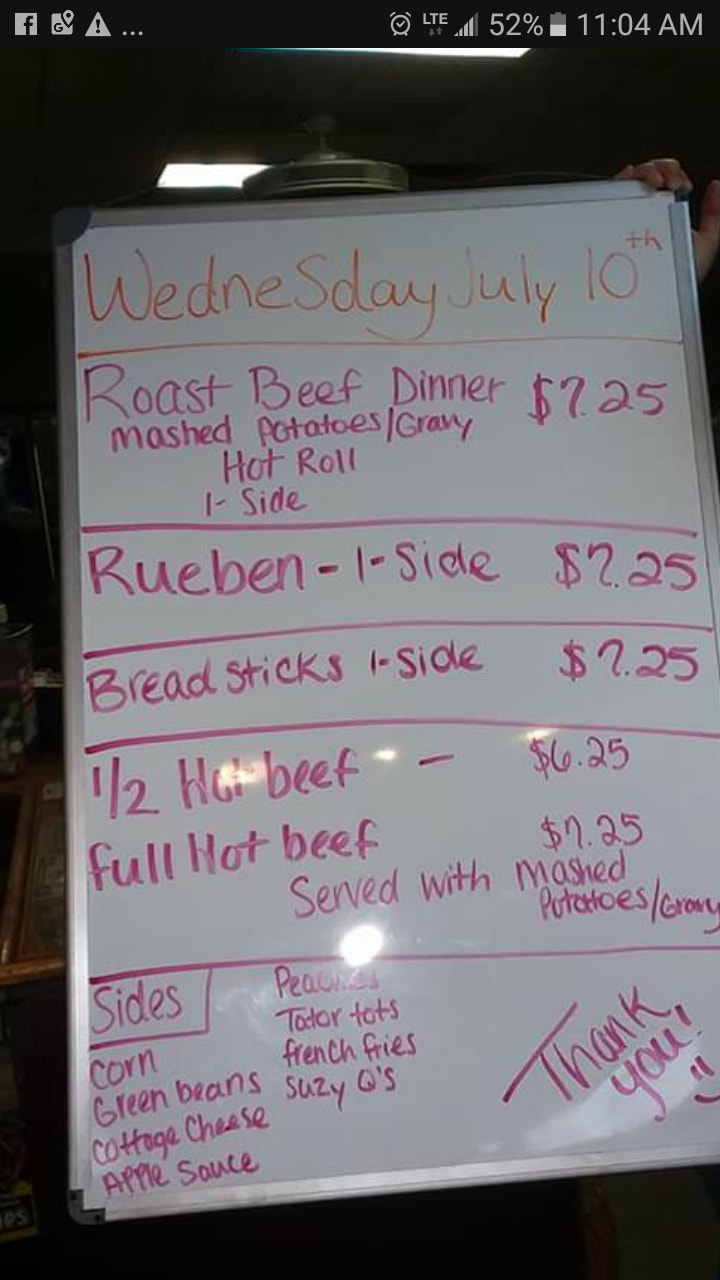 52% 11:04 AM
LTE
Wednesday July 10th
Roast Beef Dinner $7.25
Mashed Potatoes/Gravy
Hot Roll
1- Side
Rueben - 1-Side $7.25
Bread sticks 1-Side $7.25
1/2 Hot beef - $6.25
full Hot beef $7.25
Served with Mashed
Potatoes/Gravy
Sides
Corn
Green beans
Cottage Cheese
Apple Sauce
Peaches
Tator tots
french fries
Suzy Q's
Thank
you!